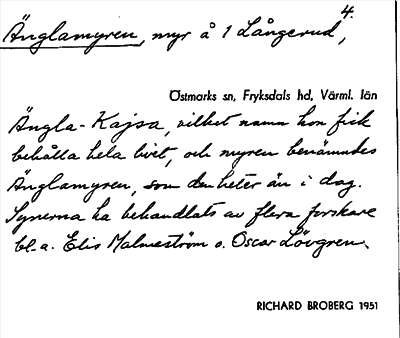 4.
Änglamyren, myr å 1 Långerud,
Östmarks sn, Fryksdals hd, Värml. län
Ängla-Kajsa, vilket namn hon fick
behålla hela livet, och myren benämndes
Änglamyren, som den heter än i dag.
Synerna ha behandlats av flera forskare
bl.a. Elis Malmeström o. Oscar Lövgren.
RICHARD BROBERG 1951